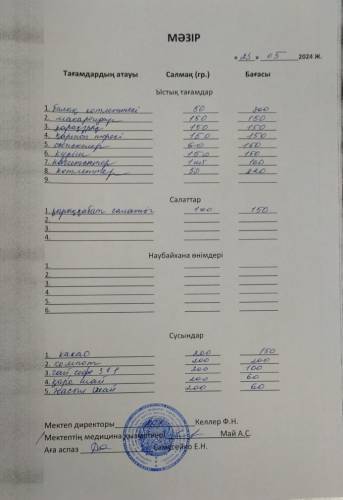 МӘЗІР
« 23 » 05 2024 ж.
Тағамдардың атауы Салмақ (гр.) Бағасы
Ыстық тағамдар
1. балық котлеттері 50 200
2. макарондар 150 150
3. 150 150
4. 150 150
5. 150
6. күріш 150 150
7. 100
8. котлеттер 50
9.
Салаттар
1. салаты 100 150
2.
3.
4.
Наубайхана өнімдері
1.
2.
3.
4.
5.
6.
Сусындар
1. какао 200 150
2. компот 200 100
3. 200 100
4. қара шай 200 60
5. Жасыл шай 200 60
Мектеп директоры Келлер Ф.Н.
Мектептің медицина қызметкері Май А.С.
Аға аспаз Самусейко Е.Н.